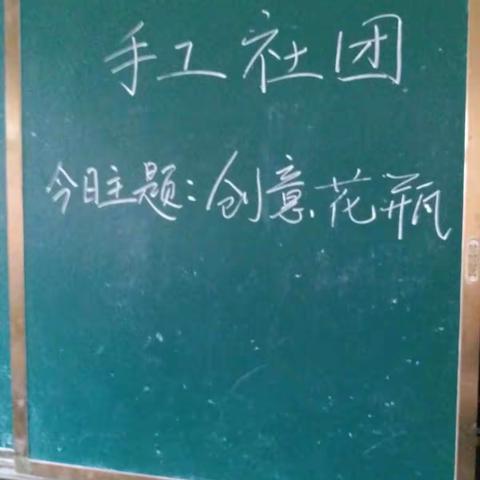 手工社团
今日主题:创意花瓶